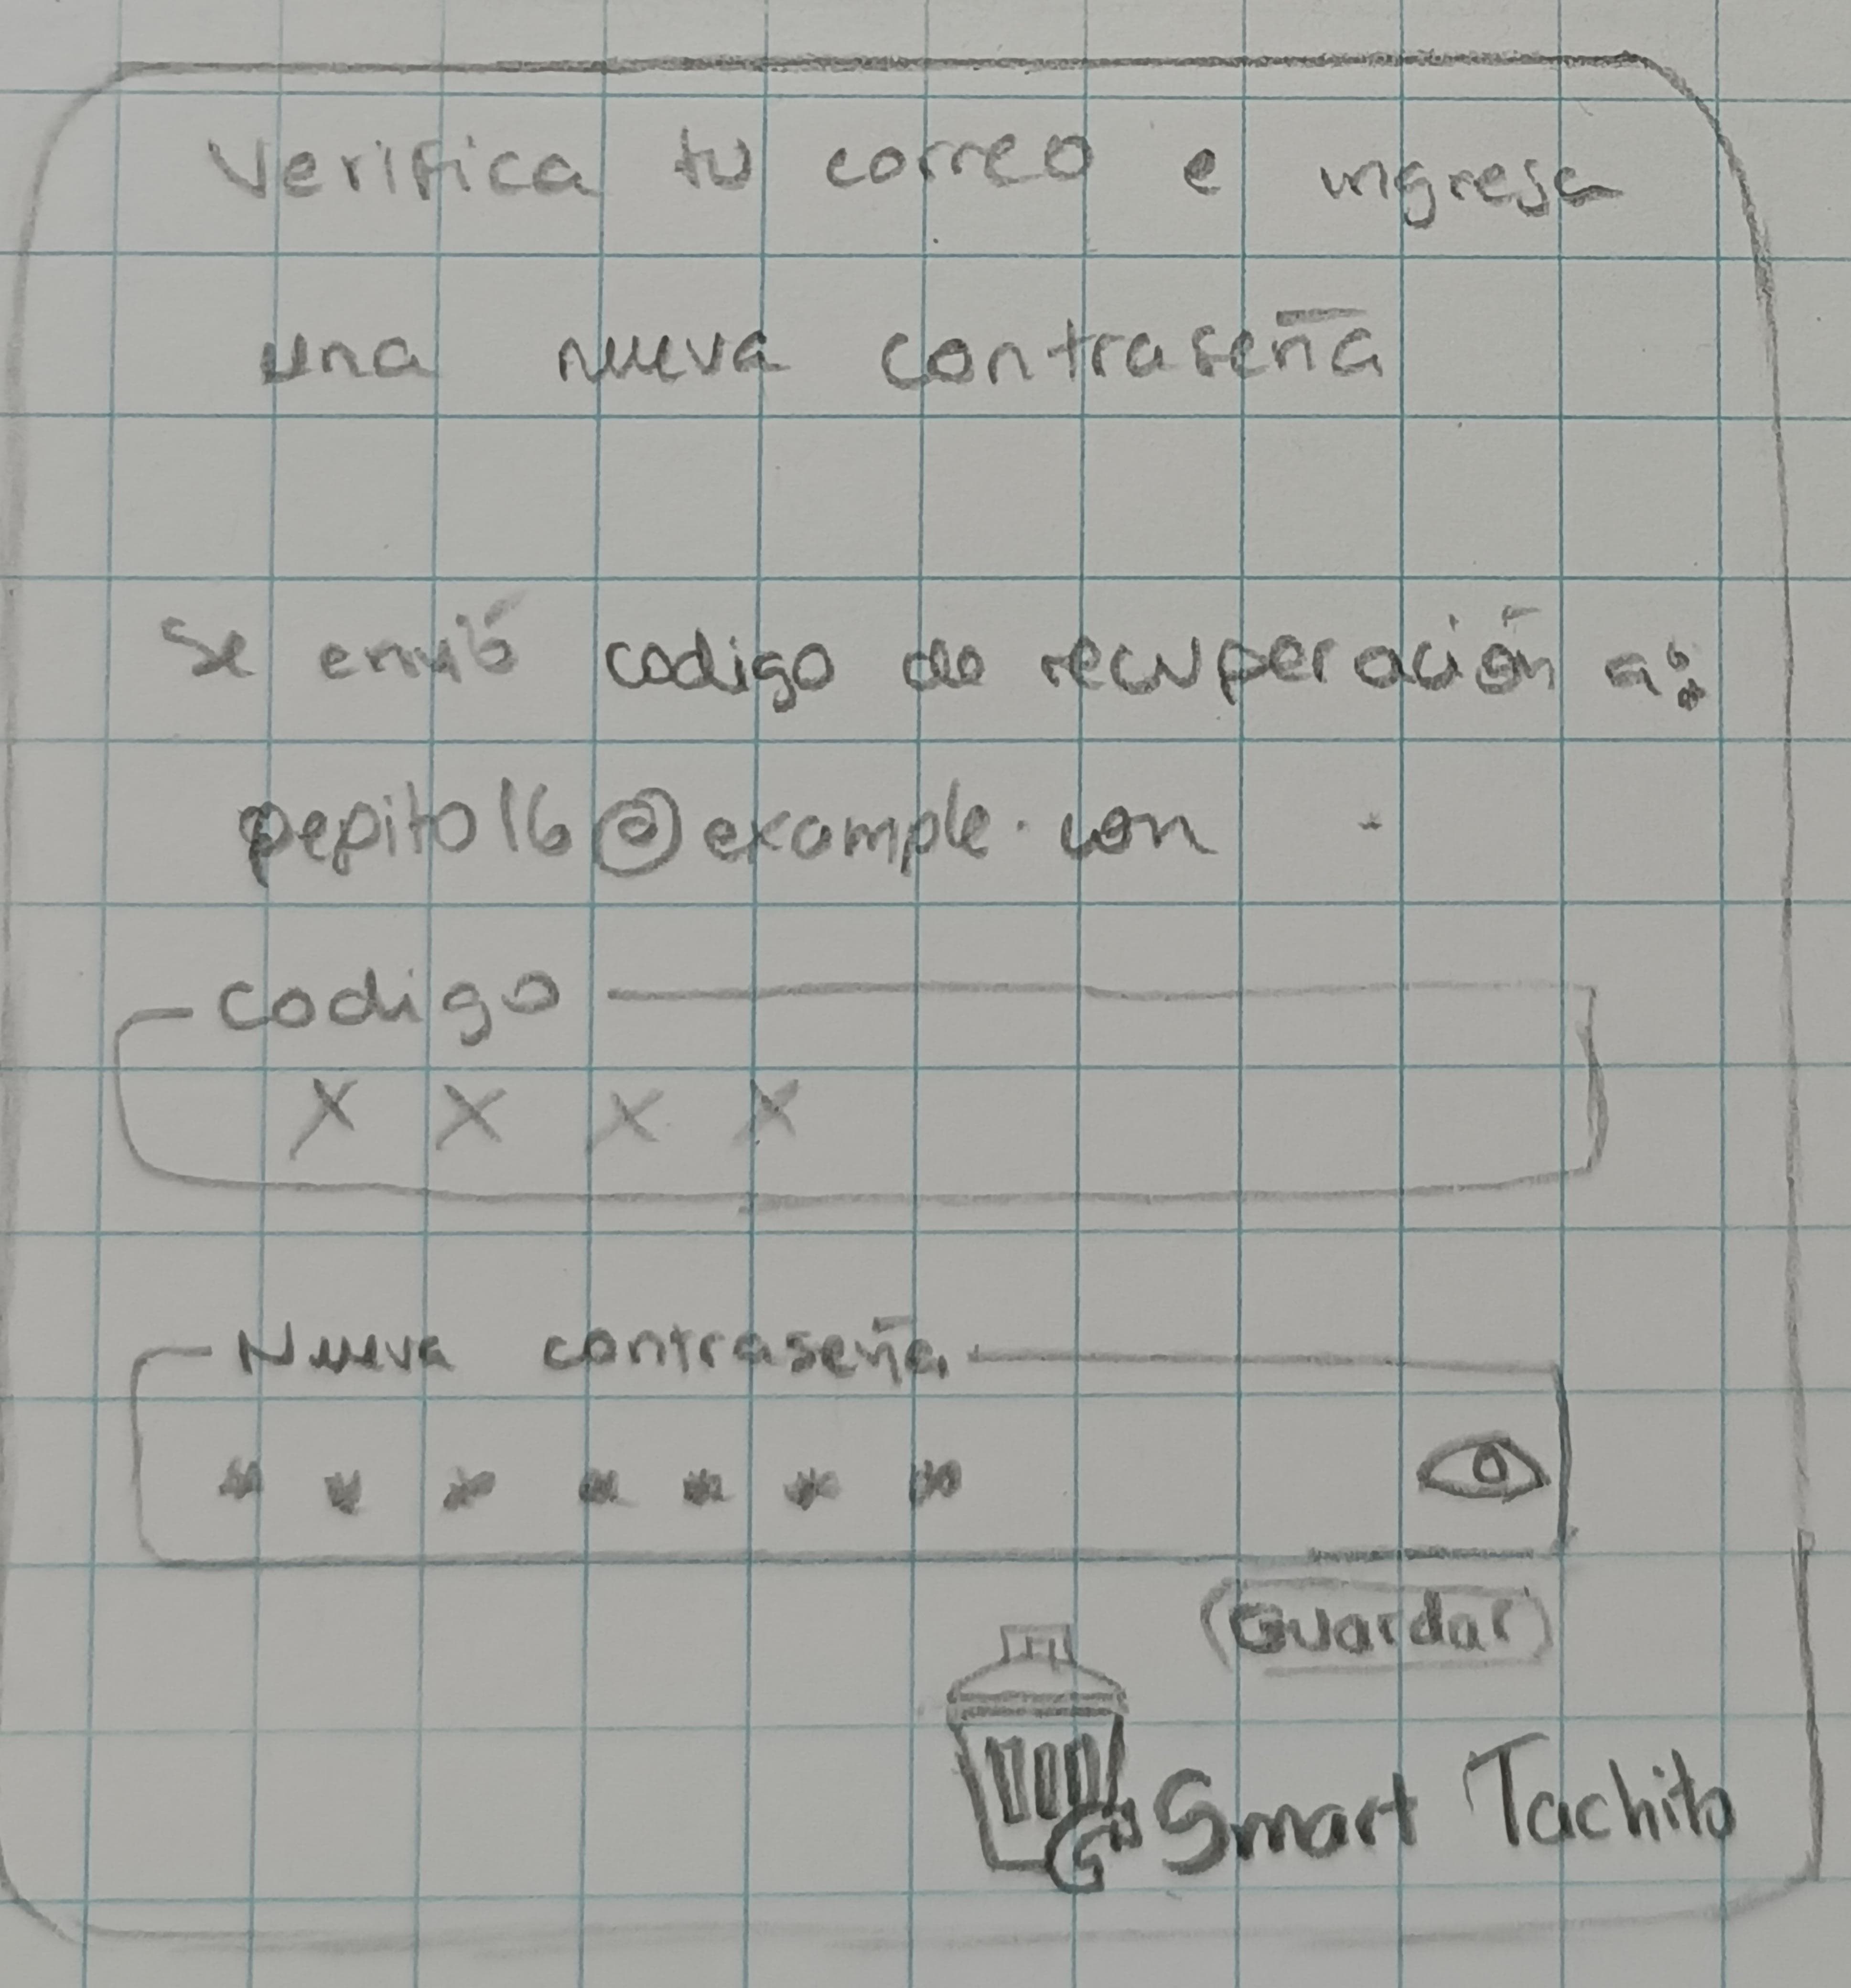 Verifica tu correo e ingresa
una nueva contraseña
Se envió codigo de recuperación a:
pepito16@example.com
codigo
X X X X
Nueva contraseña
* * * * * * *
Guardar
Smart Tachito